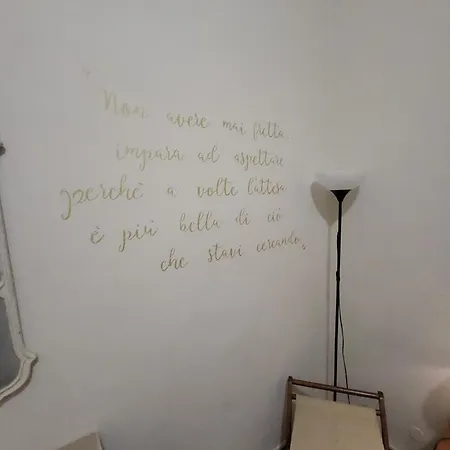 Non avere mai fretta,
impara ad aspettare
perchè a volte l'attesa
è più bella di ciò
che stavi cercando.